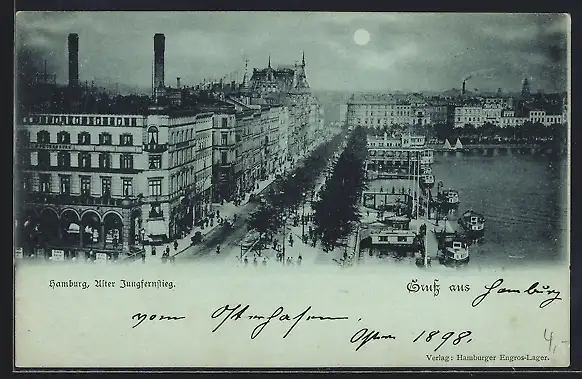 Hamburg, Alter Jungfernstieg.
Gruß aus Hamburg
vom Osterhasen.
Ostern 1898.
4,-
Verlag: Hamburger Engros-Lager.